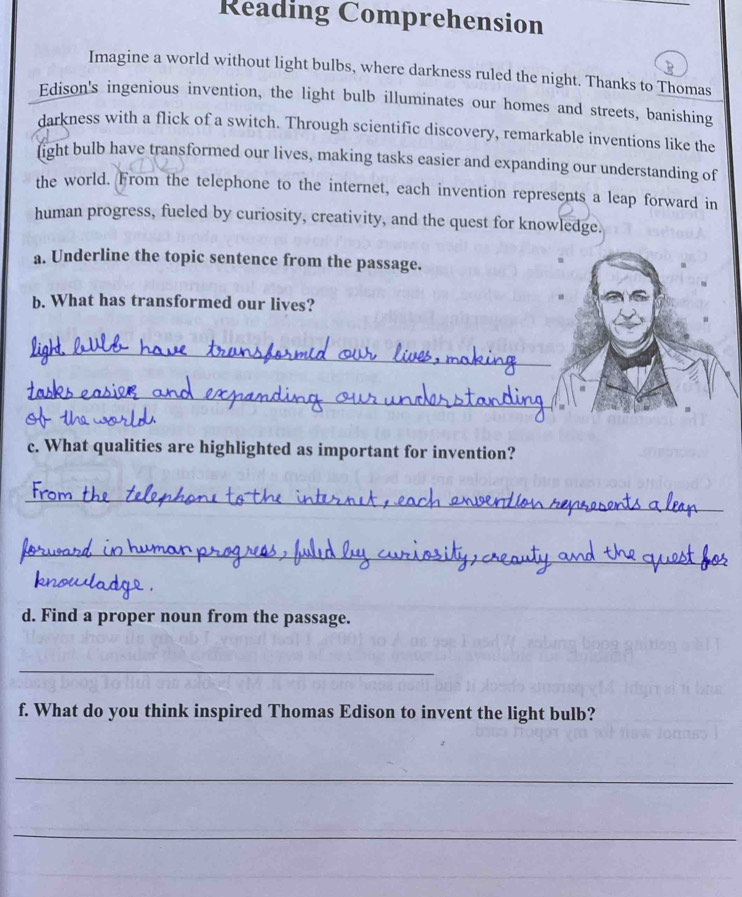 Reading Comprehension
Imagine a world without light bulbs, where darkness ruled the night. Thanks to Thomas
Edison's ingenious invention, the light bulb illuminates our homes and streets, banishing
darkness with a flick of a switch. Through scientific discovery, remarkable inventions like the
light bulb have transformed our lives, making tasks easier and expanding our understanding of
the world. From the telephone to the internet, each invention represents a leap forward in
human progress, fueled by curiosity, creativity, and the quest for knowledge.
a. Underline the topic sentence from the passage.
b. What has transformed our lives?
light bulb have transformed our lives, making
tasks easier and expanding our understanding
of the world.
c. What qualities are highlighted as important for invention?
From the telephone to the internet, each envention represents a leap
forward in human progress, fuled by curiosity, creauty and the quest for
knowladge.
d. Find a proper noun from the passage.
f. What do you think inspired Thomas Edison to invent the light bulb?